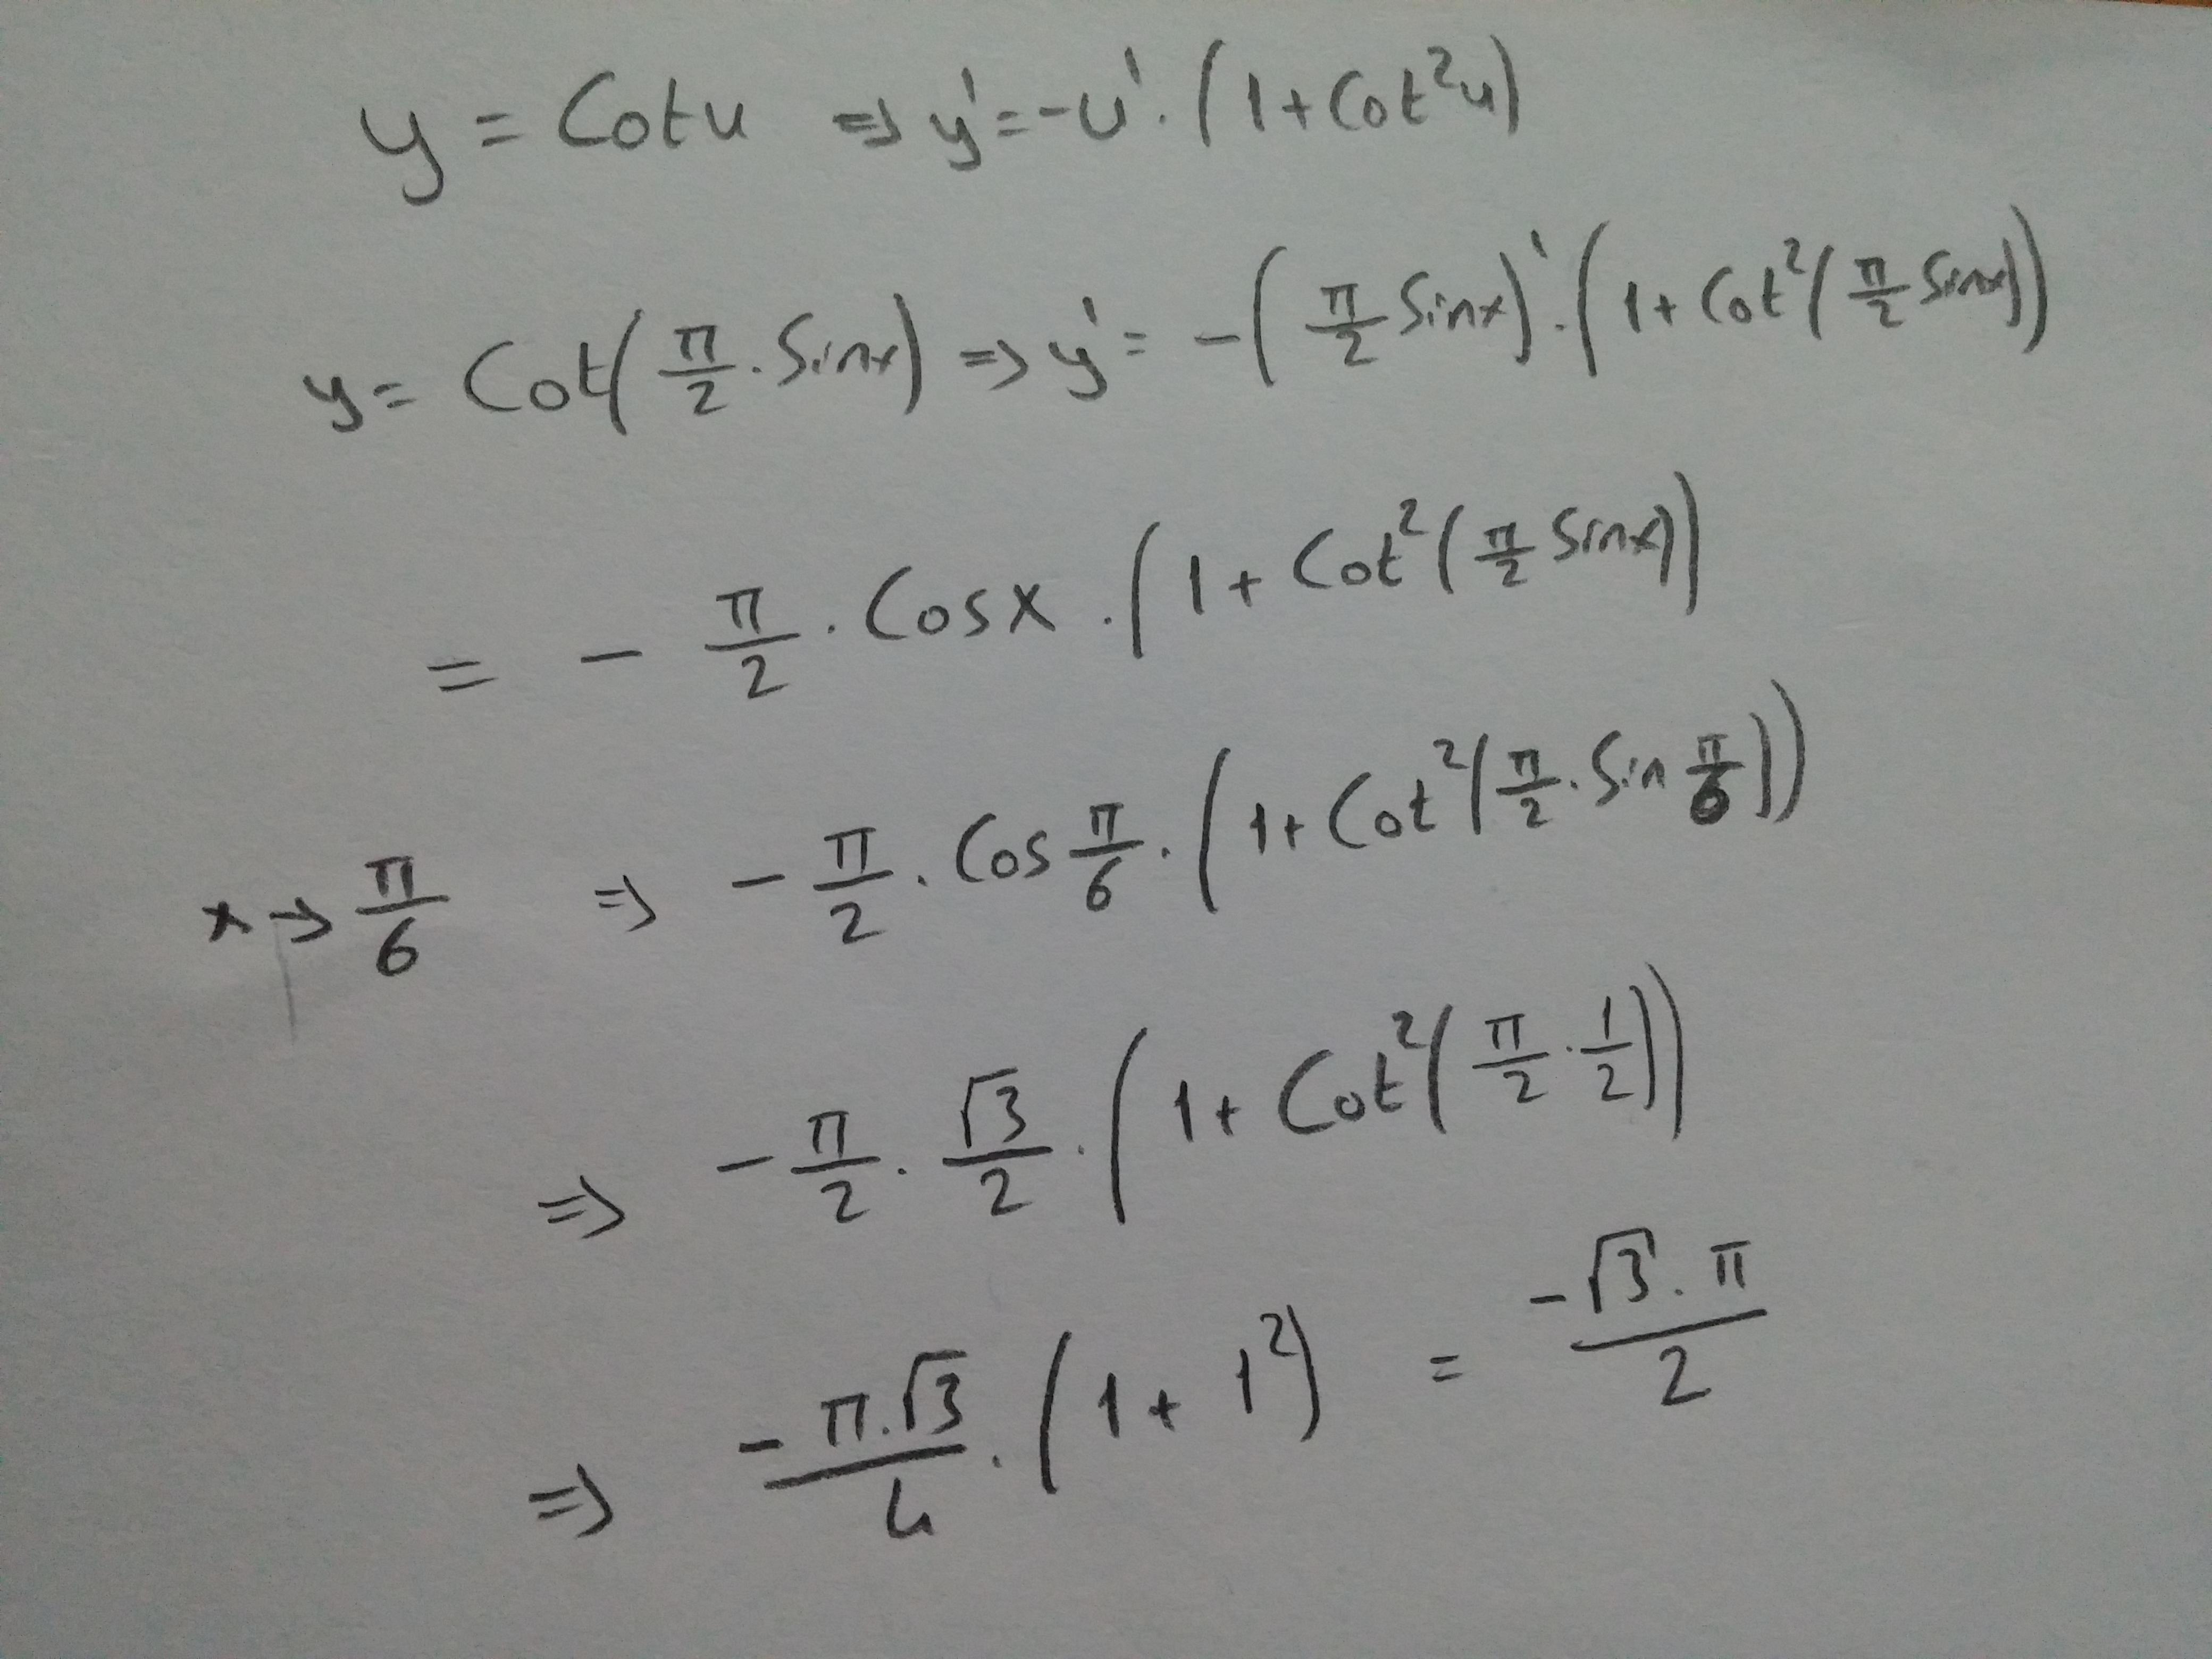 y = Cotu ⇒ y' = -u' . (1 + Cot²u)
y = Cot(π/2 . Sinx) ⇒ y' = -(π/2 Sinx)' . (1 + Cot²(π/2 Sinx))
= - π/2 . Cosx . (1 + Cot²(π/2 Sinx))
x → π/6 ⇒ - π/2 . Cos π/6 . (1 + Cot²(π/2 . Sin π/6))
⇒ - π/2 . √3/2 . (1 + Cot²(π/2 . 1/2))
⇒ -π.√3/4 . (1 + 1²) = -√3 . π/2